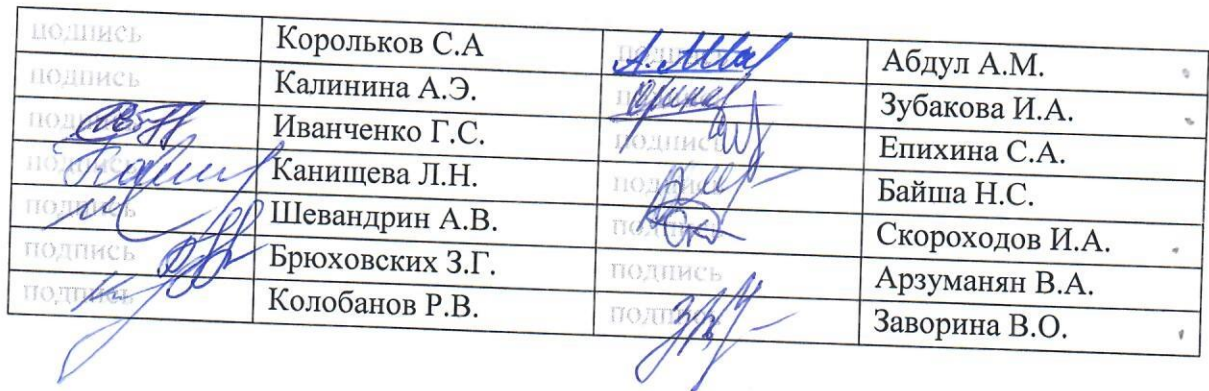 подпись Корольков С.А подпись Абдул А.М.
подпись Калинина А.Э. подпись Зубакова И.А.
подпись Иванченко Г.С. подпись Епихина С.А.
подпись Канищева Л.Н. подпись Байша Н.С.
подпись Шевандрин А.В. подпись Скороходов И.А.
подпись Брюховских З.Г. подпись Арзуманян В.А.
подпись Колобанов Р.В. подпись Заворина В.О.